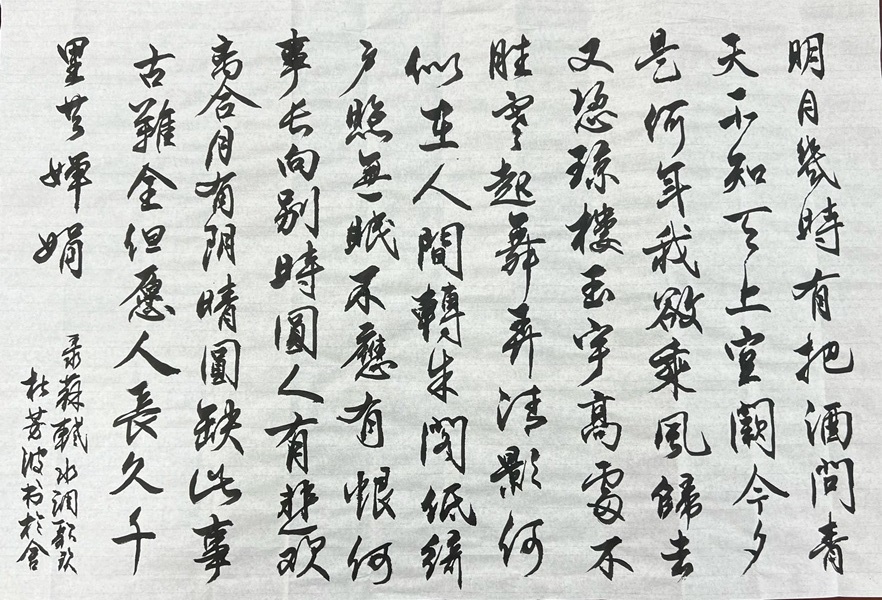 明月幾時有把酒問青
天不知天上宫闕今夕
是何年我欲乘風歸去
又恐瓊樓玉宇高處不
勝寒起舞弄清影何
似在人間轉朱閣低綺
户照無眠不應有恨何
事长向别時圓人有悲欢
离合月有阴晴圓缺此事
古難全但愿人長久千
里共嬋娟
录蘇軾水调歌头
杜芳波书於舍